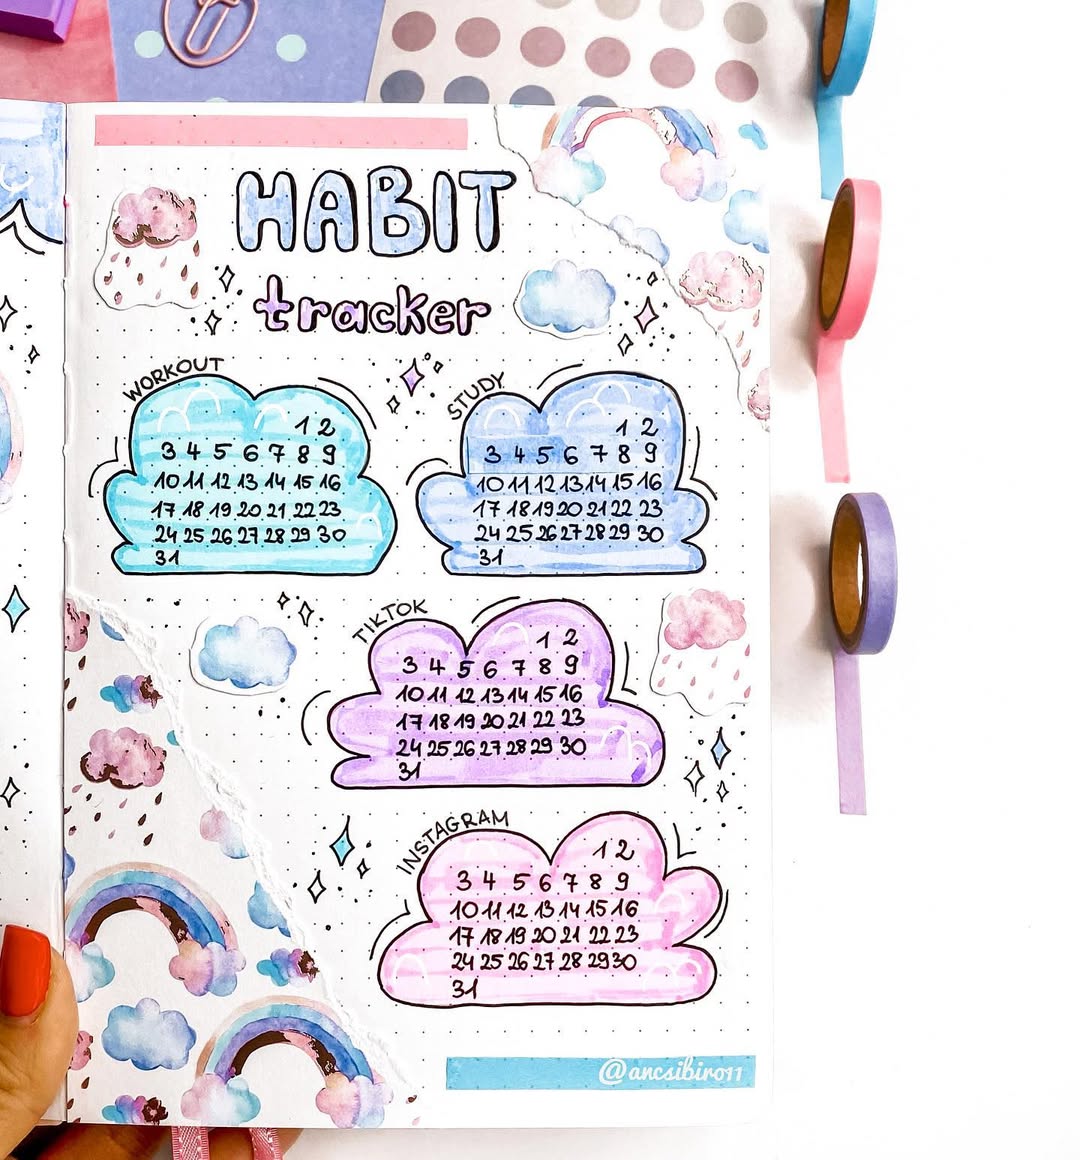 HABIT
tracker
WORKOUT
1 2
3 4 5 6 7 8 9
10 11 12 13 14 15 16
17 18 19 20 21 22 23
24 25 26 27 28 29 30
31
STUDY
1 2
3 4 5 6 7 8 9
10 11 12 13 14 15 16
17 18 19 20 21 22 23
24 25 26 27 28 29 30
31
TIKTOK
1 2
3 4 5 6 7 8 9
10 11 12 13 14 15 16
17 18 19 20 21 22 23
24 25 26 27 28 29 30
31
INSTAGRAM
1 2
3 4 5 6 7 8 9
10 11 12 13 14 15 16
17 18 19 20 21 22 23
24 25 26 27 28 29 30
31
@ancsibiro11